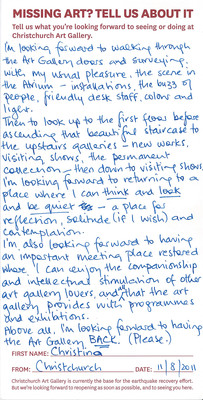 MISSING ART? TELL US ABOUT IT
Tell us what you're looking forward to seeing or doing at
Christchurch Art Gallery.
I'm looking forward to walking through
the Art Gallery doors and surveying,
with my usual pleasure, the scene in
the Atrium – installations, the buzz of
people, friendly desk staff, colour and
light.
Then to look up to the first floor before
ascending that beautiful staircase to
the upstairs galleries – new works,
visiting shows, the permanent
collection – then down to visiting shows.
I'm looking forward to returning to a
place where I can think and look
and be quiet – a place for
reflection, solitude (if I wish) and
contemplation.
I'm also looking forward to having
an important meeting place restored
where I can enjoy the companionship
and intellectual stimulation of other
art gallery lovers, and all that the art
gallery provides with programmes
and exhibitions.
Above all, I'm looking forward to having
the Art Gallery BACK. (Please.)
FIRST NAME: Christina
FROM: Christchurch DATE: 11/8/2011
Christchurch Art Gallery is currently the base for the earthquake recovery effort.
But we're looking forward to reopening as soon as possible, and to seeing you here.